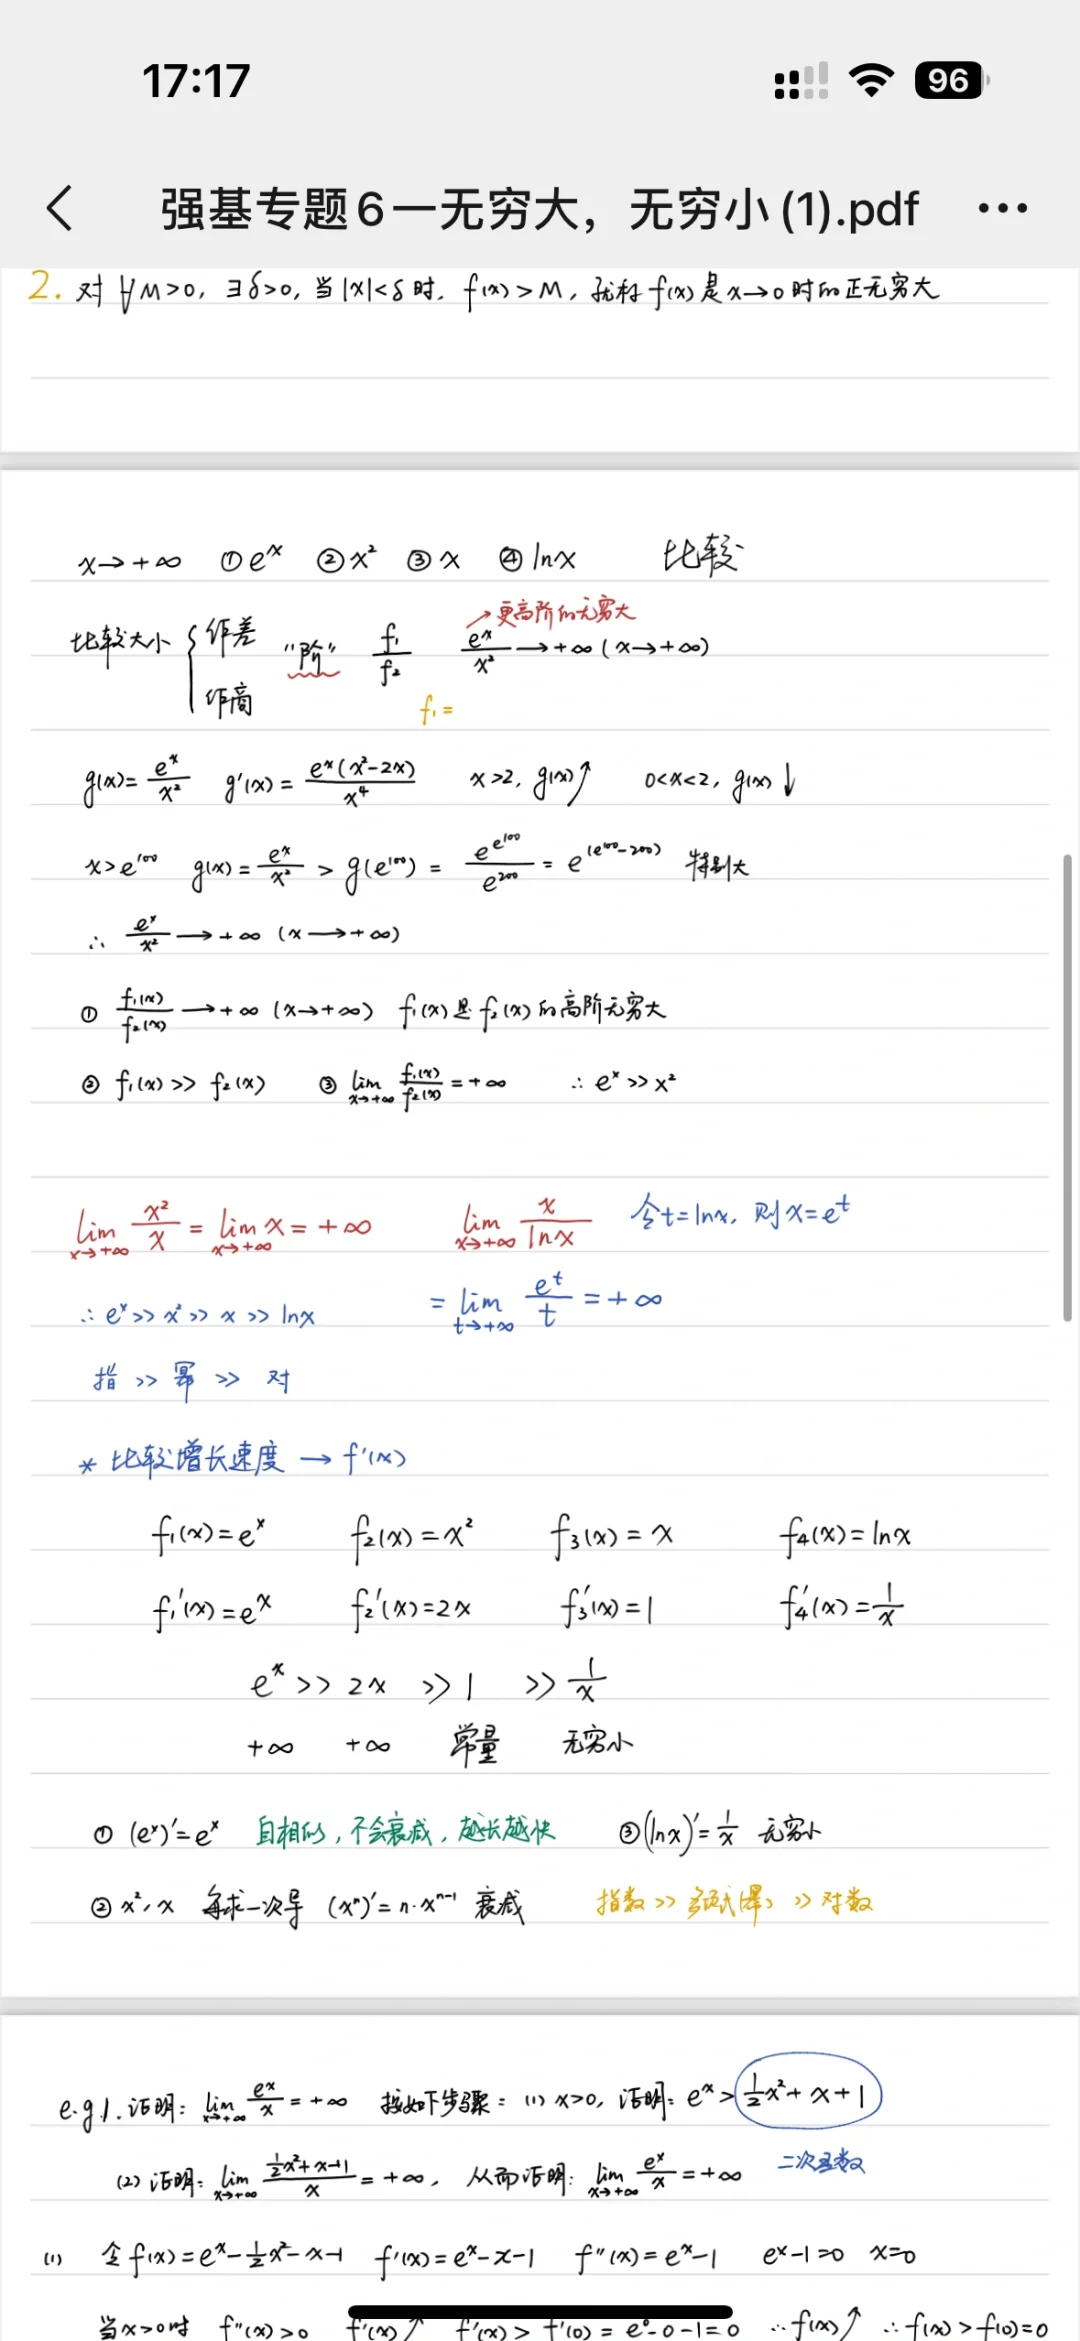 17:17
96
强基专题6一无穷大，无穷小(1).pdf
2. 对∀M>0, ∃δ>0, 当|x|<δ时, f(x)>M, 就称f(x)是x→0时的正无穷大
x→+∞ ①eˣ ②x² ③x ④lnx 比较
↗更高阶的无穷大
比较大小 { 作差 "阶" f₁/f₂ eˣ/x² →+∞ (x→+∞)
作商 f₁=
g(x)=eˣ/x² g'(x)=eˣ(x²-2x)/x⁴ x>2, g(x)↑ 0<x<2, g(x)↓
x>e¹⁰⁰ g(x)=eˣ/x² > g(e¹⁰⁰) = e^(e¹⁰⁰)/e²⁰⁰ = e^(e¹⁰⁰-200) 特别大
∴ eˣ/x² →+∞ (x→+∞)
① f₁(x)/f₂(x) →+∞ (x→+∞) f₁(x)是f₂(x)的高阶无穷大
② f₁(x)>>f₂(x) ③ lim x→+∞ f₁(x)/f₂(x) =+∞ ∴ eˣ>>x²
lim x→+∞ x²/x = lim x→+∞ x=+∞ lim x→+∞ x/lnx 令t=lnx, 则x=eᵗ
∴ eˣ>>x²>>x>>lnx = lim t→+∞ eᵗ/t =+∞
指 >> 幂 >> 对
* 比较增长速度 → f'(x)
f₁(x)=eˣ f₂(x)=x² f₃(x)=x f₄(x)=lnx
f₁'(x)=eˣ f₂'(x)=2x f₃'(x)=1 f₄'(x)=1/x
eˣ >> 2x >> 1 >> 1/x
+∞ +∞ 常量 无穷小
① (eˣ)'=eˣ 自相似, 不会衰减, 越长越快 ③(lnx)'=1/x 无穷小
② x², x 每求一次导 (xⁿ)'=n·xⁿ⁻¹ 衰减 指数>>多项式(幂)>>对数
e.g.1. 证明: lim x→+∞ eˣ/x =+∞ 按如下步骤: (1) x>0, 证明: eˣ>½x²+x+1
(2) 证明: lim x→+∞ (½x²+x+1)/x =+∞, 从而证明: lim x→+∞ eˣ/x =+∞ 二次函数
(1) 令f(x)=eˣ-½x²-x-1 f'(x)=eˣ-x-1 f''(x)=eˣ-1 eˣ-1=0 x=0
当x>0时 f''(x)>0 f'(x)↑ f'(x)>f'(0)=e⁰-0-1=0 ∴f(x)↑ ∴f(x)>f(0)=0